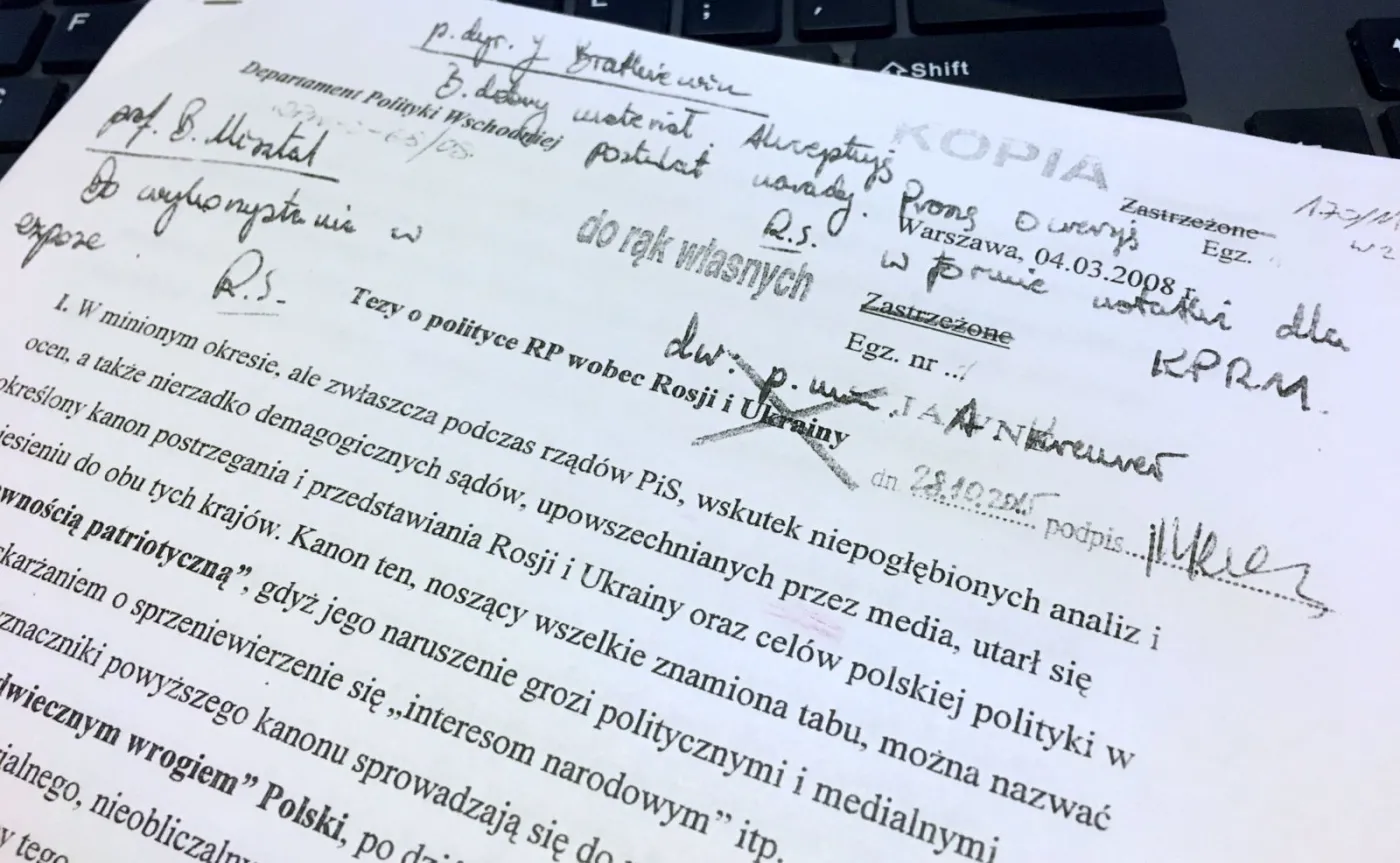 F
;
,
Shift
p. dyr. J. Bratkiewicz
B. dobry materiał. Akceptuję
postulat narady. Proszę o wersję
w formie notatki dla
KPRM.
R.S.
Departament Polityki Wschodniej
prof. B. Misztal
Do wykorzystania w
expose
R.S.
KOPIA
Zastrzeżone
Egz.
Warszawa, 04.03.2008 r.
do rąk własnych
Zastrzeżone
Egz. nr ..
dw: p. min. Kremer
JAWNE
dn. 28.10.2015 podpis...
Tezy o polityce RP wobec Rosji i Ukrainy
I. W minionym okresie, ale zwłaszcza podczas rządów PiS, wskutek niepogłębionych analiz i
ocen, a także nierzadko demagogicznych sądów, upowszechnianych przez media, utarł się
określony kanon postrzegania i przedstawiania Rosji i Ukrainy oraz celów polskiej polityki w
esieniu do obu tych krajów. Kanon ten, noszący wszelkie znamiona tabu, można nazwać
wnością patriotyczną”, gdyż jego naruszenie grozi politycznymi i medialnymi
skarżaniem o sprzeniewierzenie się „interesom narodowym” itp.
znaczniki powyższego kanonu sprowadzają się do
dwiecznym wrogiem” Polski, po
ialnego, nieobliczaln
y tego